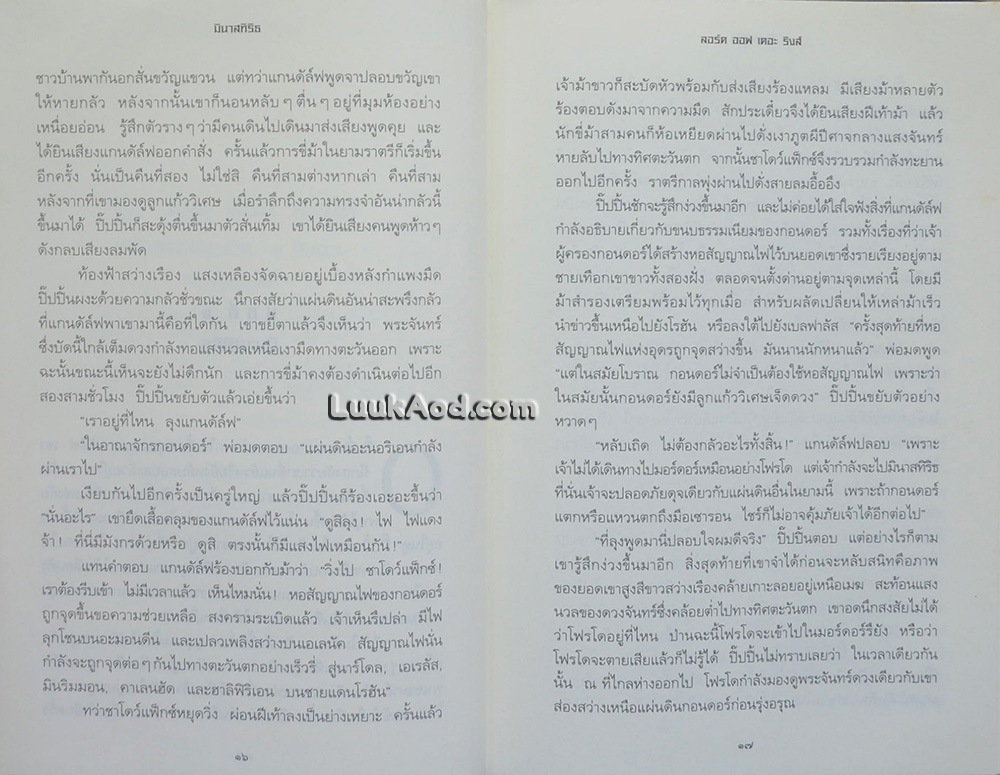 มินาสทิริธ
ชาวบ้านพากันอกสั่นขวัญแขวน แต่ทว่าแกนดัล์ฟพูดจาปลอบขวัญเขา
ให้หายกลัว หลังจากนั้นเขาก็นอนหลับๆ ตื่นๆ อยู่ที่มุมห้องอย่าง
เหนื่อยอ่อน รู้สึกตัวรางๆ ว่ามีคนเดินไปเดินมาส่งเสียงพูดคุย และ
ได้ยินเสียงแกนดัล์ฟออกคำสั่ง ครั้นแล้วการขี่ม้าในยามราตรีก็เริ่มขึ้น
อีกครั้ง นั่นเป็นคืนที่สอง ไม่ใช่สิ คืนที่สามต่างหากเล่า คืนที่สาม
หลังจากที่เขามองดูลูกแก้ววิเศษ เมื่อรำลึกถึงความทรงจำอันน่ากลัวนี้
ขึ้นมาได้ ปิ๊ปปิ้นก็สะดุ้งตื่นขึ้นมาตัวสั่นเทิ้ม เขาได้ยินเสียงคนพูดห้าวๆ
ดังกลบเสียงลมพัด
ท้องฟ้าสว่างเรือง แสงเหลืองจัดฉายอยู่เบื้องหลังกำแพงมืด
ปิ๊ปปิ้นผงะด้วยความกลัวชั่วขณะ นึกสงสัยว่าแผ่นดินอันน่าสะพรึงกลัว
ที่แกนดัล์ฟพาเขามานี้คือที่ใดกัน เขาขยี้ตาแล้วจึงเห็นว่า พระจันทร์
ซึ่งบัดนี้ใกล้เต็มดวงกำลังทอแสงนวลเหนือเงามืดทางตะวันออก เพราะ
ฉะนั้นขณะนี้เห็นจะยังไม่ดึกนัก และการขี่ม้าคงต้องดำเนินต่อไปอีก
สองสามชั่วโมง ปิ๊ปปิ้นขยับตัวแล้วเอ่ยขึ้นว่า
“เราอยู่ที่ไหน ลุงแกนดัล์ฟ”
“ในอาณาจักรกอนดอร์” พ่อมดตอบ “แผ่นดินอะนอริเอนกำลัง
ผ่านเราไป”
เงียบกันไปอีกครั้งเป็นครู่ใหญ่ แล้วปิ๊ปปิ้นก็ร้องเอะอะขึ้นว่า
“นั่นอะไร” เขายึดเสื้อคลุมของแกนดัล์ฟไว้แน่น “ดูสิลุง! ไฟ ไฟแดง
จ้า! ที่นี่มีมังกรด้วยหรือ ดูสิ ตรงนั้นก็มีแสงไฟเหมือนกัน!”
แทนคำตอบ แกนดัล์ฟร้องบอกกับม้าว่า “วิ่งไป ชาโดว์แฟ็กซ์!
เราต้องรีบเข้า ไม่มีเวลาแล้ว เห็นไหมนั่น! หอสัญญาณไฟของกอนดอร์
ถูกจุดขึ้นขอความช่วยเหลือ สงครามระเบิดแล้ว เจ้าเห็นรึเปล่า มีไฟ
ลุกโชนบนอะมอนดีน และเปลวเพลิงสว่างบนเอเลนัค สัญญาณไฟนั่น
กำลังจะถูกจุดต่อๆ กันไปทางตะวันตกอย่างเร็วรี่ สู่นาร์โดล, เอเรลัส,
มินริมมอน, คาเลนฮัด และฮาลิฟิริเอน บนชายแดนโรฮัน”
ทว่าชาโดว์แฟ็กซ์หยุดวิ่ง ผ่อนฝีเท้าลงเป็นย่างเหยาะ ครั้นแล้ว
๑๖
ลอร์ด ออฟ เดอะ ริงส์
เจ้าม้าขาวก็สะบัดหัวพร้อมกับส่งเสียงร้องแหลม มีเสียงม้าหลายตัว
ร้องตอบดังมาจากความมืด สักประเดี๋ยวจึงได้ยินเสียงฝีเท้าม้า แล้ว
นักขี่ม้าสามคนก็ห้อเหยียดผ่านไปดั่งเงาภูตผีปีศาจกลางแสงจันทร์
หายลับไปทางทิศตะวันตก จากนั้นชาโดว์แฟ็กซ์จึงรวบรวมกำลังทะยาน
ออกไปอีกครั้ง ราตรีกาลพุ่งผ่านไปดั่งสายลมอื้ออึง
ปิ๊ปปิ้นชักจะรู้สึกง่วงขึ้นมาอีก และไม่ค่อยได้ใส่ใจฟังสิ่งที่แกนดัล์ฟ
กำลังอธิบายเกี่ยวกับขนบธรรมเนียมของกอนดอร์ รวมทั้งเรื่องที่ว่าเจ้า
ผู้ครองกอนดอร์ได้สร้างหอสัญญาณไฟไว้บนยอดเขาซึ่งรายเรียงอยู่ตาม
ชายเทือกเขาขาวทั้งสองฝั่ง ตลอดจนตั้งด่านอยู่ตามจุดเหล่านี้ โดยมี
ม้าสำรองเตรียมพร้อมไว้ทุกเมื่อ สำหรับผลัดเปลี่ยนให้เหล่าม้าเร็ว
นำข่าวขึ้นเหนือไปยังโรฮัน หรือลงใต้ไปยังเบลฟาลัส “ครั้งสุดท้ายที่หอ
สัญญาณไฟแห่งอุดรถูกจุดสว่างขึ้น มันนานนักหนาแล้ว” พ่อมดพูด
“แต่ในสมัยโบราณ กอนดอร์ไม่จำเป็นต้องใช้หอสัญญาณไฟ เพราะว่า
ในสมัยนั้นกอนดอร์ยังมีลูกแก้ววิเศษเจ็ดดวง” ปิ๊ปปิ้นขยับตัวอย่าง
หวาดๆ
“หลับเถิด ไม่ต้องกลัวอะไรทั้งสิ้น!” แกนดัล์ฟปลอบ “เพราะ
เจ้าไม่ได้เดินทางไปมอร์ดอร์เหมือนอย่างโฟรโด แต่เจ้ากำลังจะไปมินาสทิริธ
ที่นั่นเจ้าจะปลอดภัยดุจเดียวกับแผ่นดินอื่นในยามนี้ เพราะถ้ากอนดอร์
แตกหรือแหวนตกถึงมือเซารอน ไชร์ก็ไม่อาจคุ้มภัยเจ้าได้อีกต่อไป”
“ที่ลุงพูดมานี่ปลอบใจผมดีจริง” ปิ๊ปปิ้นตอบ แต่อย่างไรก็ตาม
เขารู้สึกง่วงขึ้นมาอีก สิ่งสุดท้ายที่เขาจำได้ก่อนจะหลับสนิทคือภาพ
ของยอดเขาสูงสีขาวสว่างเรืองคล้ายเกาะลอยอยู่เหนือเมฆ สะท้อนแสง
นวลของดวงจันทร์ซึ่งคล้อยต่ำไปทางทิศตะวันตก เขาอดนึกสงสัยไม่ได้
ว่าโฟรโดอยู่ที่ไหน ป่านฉะนี้โฟรโดจะเข้าไปในมอร์ดอร์รึยัง หรือว่า
โฟรโดจะตายเสียแล้วก็ไม่รู้ได้ ปิ๊ปปิ้นไม่ทราบเลยว่า ในเวลาเดียวกัน
นั้น ณ ที่ไกลห่างออกไป โฟรโดกำลังมองดูพระจันทร์ดวงเดียวกับเขา
ส่องสว่างเหนือแผ่นดินกอนดอร์ก่อนรุ่งอรุณ
๑๗
LuukAod.com